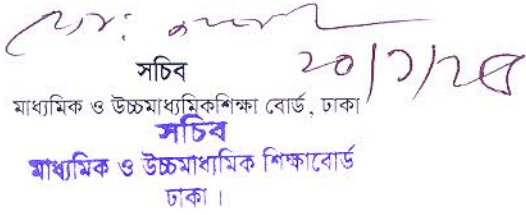 সচিব
মাধ্যমিক ও উচ্চমাধ্যমিকশিক্ষা বোর্ড, ঢাকা
সচিব
মাধ্যমিক ও উচ্চমাধ্যমিক শিক্ষাবোর্ড
ঢাকা ।